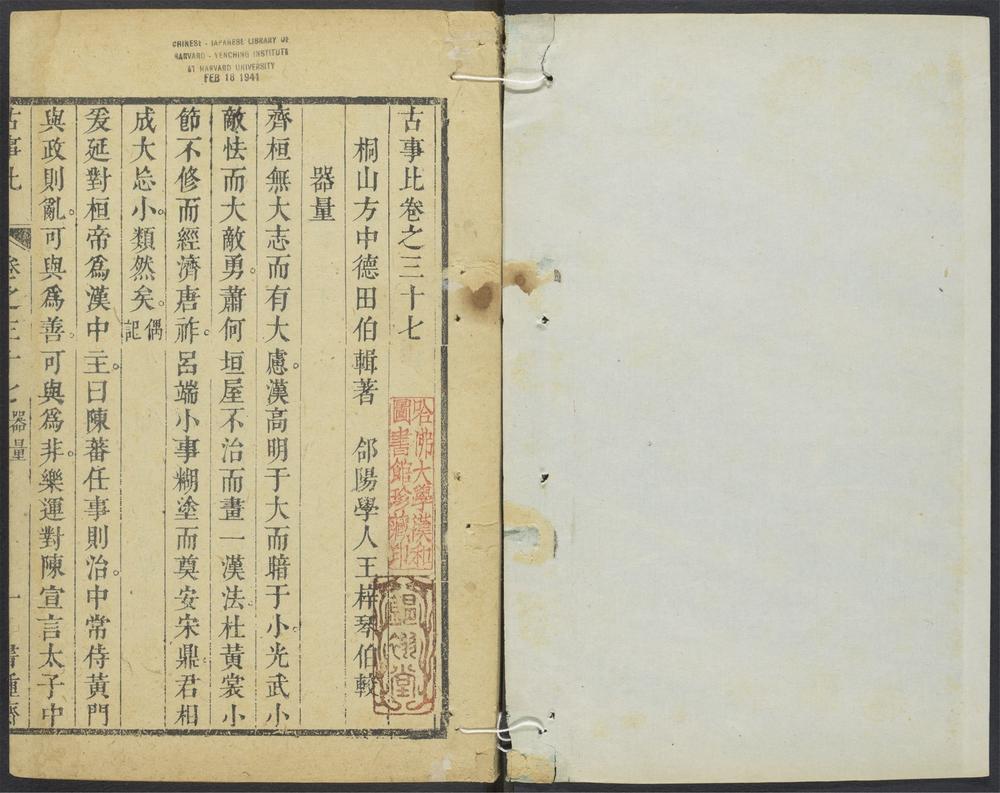 CHINESE - JAPANESE LIBRARY OF
HARVARD - YENCHING INSTITUTE
AT HARVARD UNIVERSITY
FEB 18 1941
古事比卷之三十七
桐山方中德田伯輯著　郃陽學人王梓琴伯較
器量
齊桓無大志而有大慮。漢高明于大而暗于小。光武小
敵怯而大敵勇。蕭何垣屋不治而畫一漢法。杜黃裳小
節不修而經濟唐祚。呂端小事糊塗而奠安宋鼎。君相
成大忘小。類然矣。偶記
爰延對桓帝爲漢中主。曰陳蕃任事則治。中常侍黃門
與政則亂。可與爲善。可與爲非。樂運對陳宣言太子中
古事比　卷之三十七　器量　一　書種齋
哈佛大學漢和
圖書館珍藏印